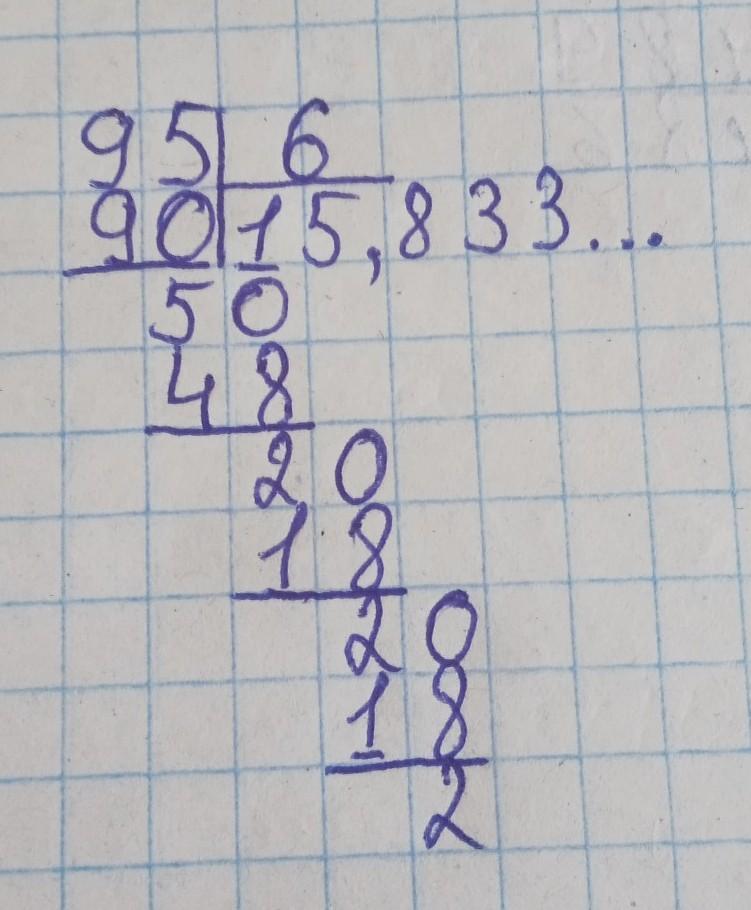 95 6
90 15,833...
50
48
20
18
20
18
2